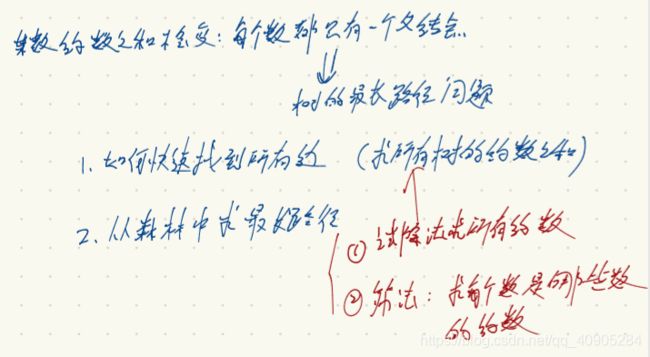 某数约数之和不变：每个数都只有一个父结点
树的最长路径问题
1. 如何快速找到所有边 （求所有树的约数之和）
2. 从森林中求最长路径
① 试除法求所有约数
② 筛法：求每个数是的哪些数
的约数
https://blog.csdn.net/qq_40905284